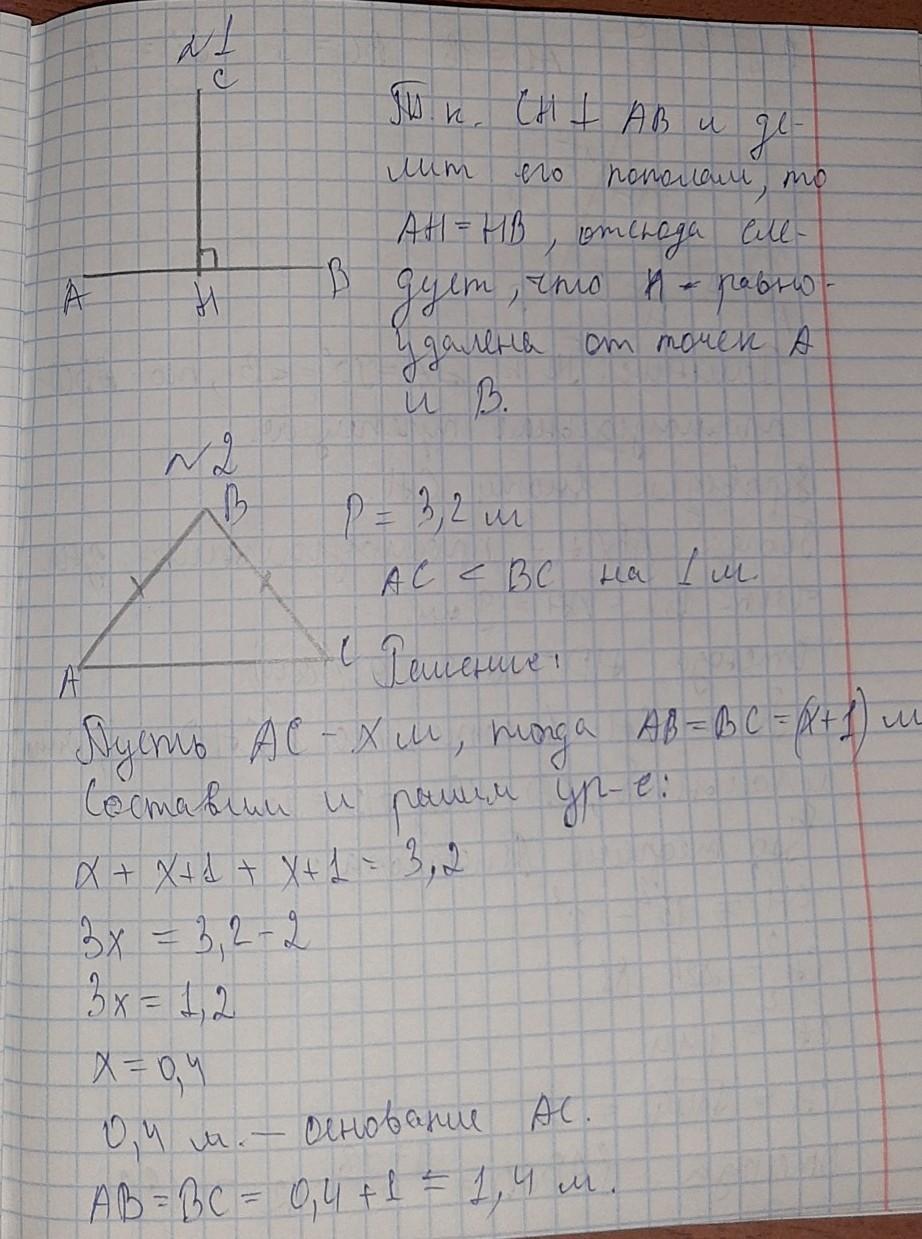 №1
C
A
H
B
Т.к. CH ⊥ AB и де-
лит его пополам, то
AH = HB, отсюда сле-
дует, что H - равно-
удалена от точек A
и B.
№2
B
A
C
P = 3,2 м
AC < BC на 1 м.
Решение:
Пусть AC - x м, тогда AB = BC = (x+1) м
Составим и решим ур-е:
x + x+1 + x+1 = 3,2
3x = 3,2 - 2
3x = 1,2
x = 0,4
0,4 м. — основание AC.
AB = BC = 0,4 + 1 = 1,4 м.